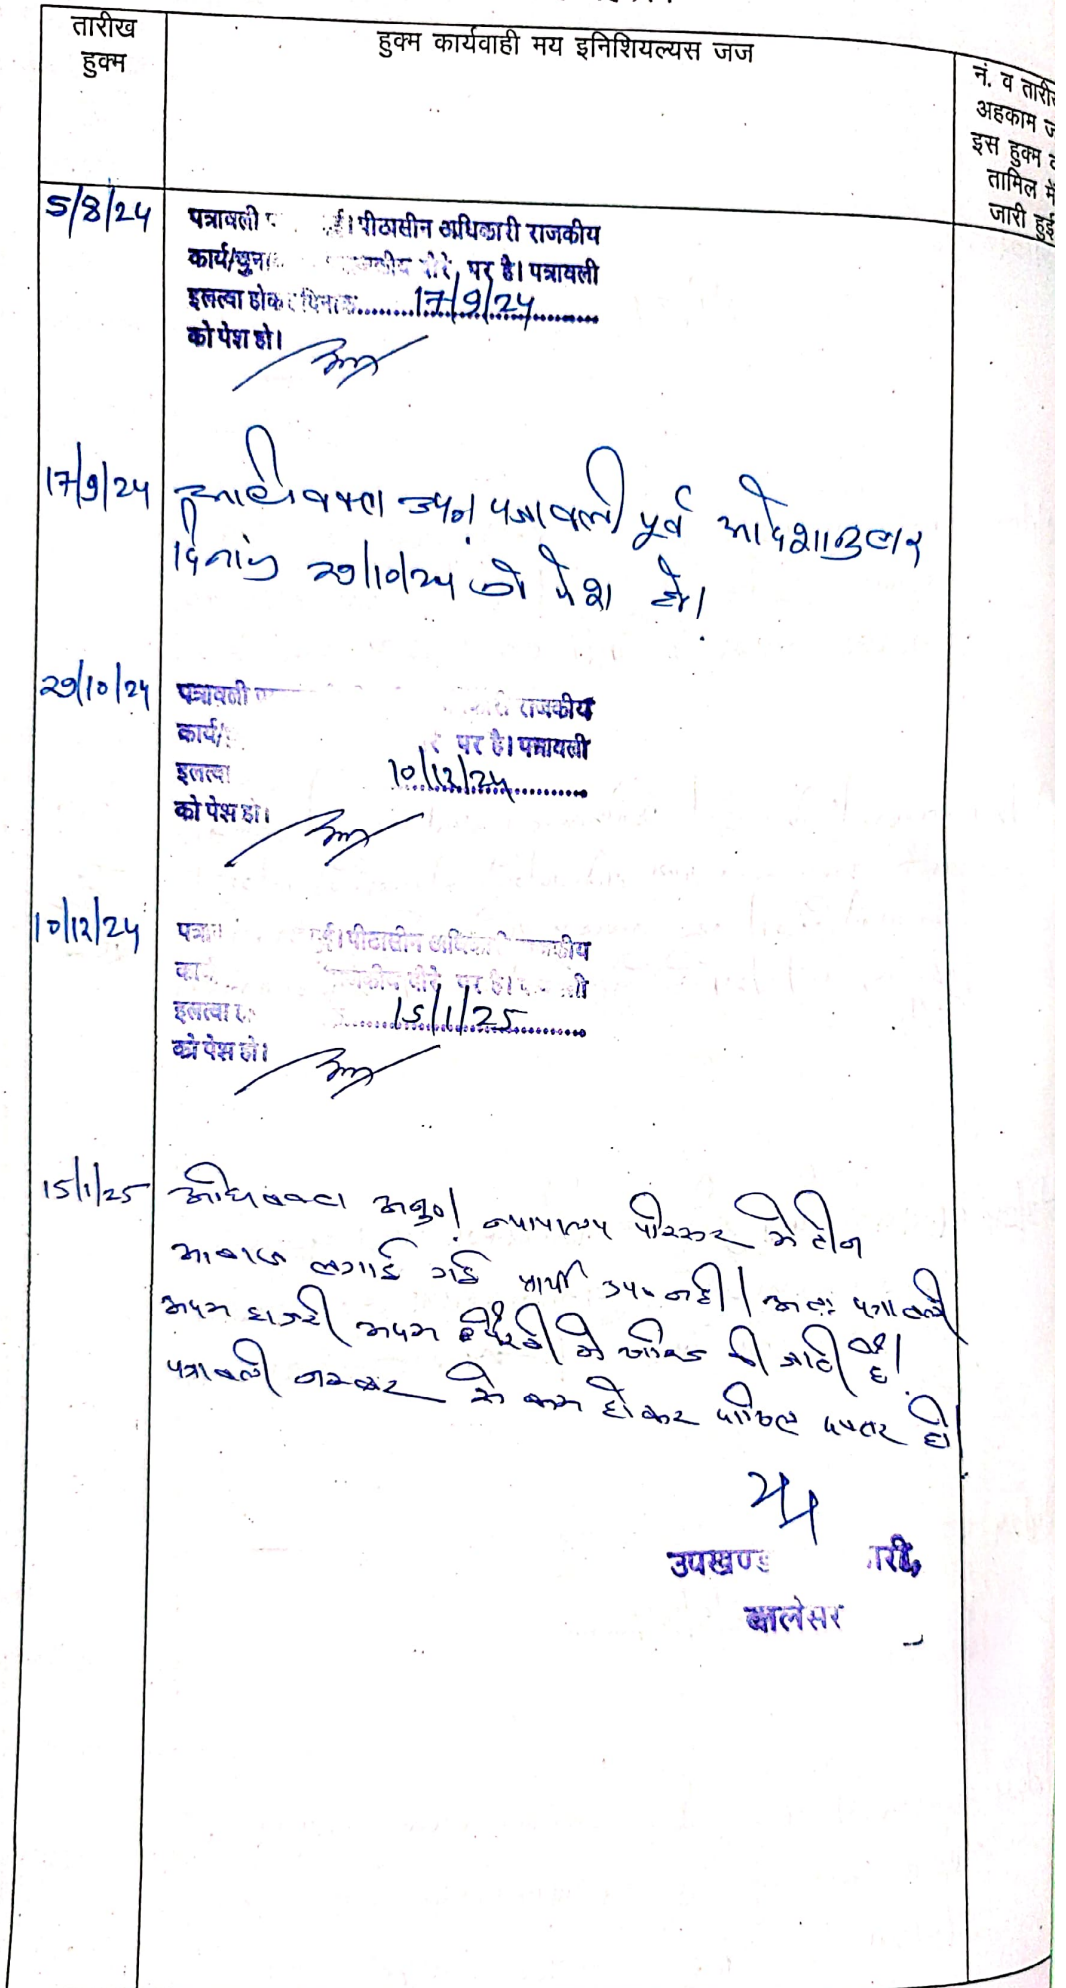 तारीख
हुक्म
हुक्म कार्यवाही मय इनिशियल्यस जज
नं. व तारीख
अहकाम ज
इस हुक्म
तामिल में
जारी हुई
5/8/24
पत्रावली पीठासीन अधिकारी राजकीय
कार्य/चुनाव दौरे पर है। पत्रावली
इलत्वा होकर दिनांक 17/9/24
को पेश हो।
17/9/24
अधिवक्ता उप० पत्रावली पूर्व आदेशानुसार
दिनांक 29/10/24 को पेश हो।
29/10/24
पत्रावली राजकीय
कार्य/ पर है। पत्रावली
इलत्वा 10/12/24
को पेश हो।
10/12/24
पीठासीन अधिकारी राजकीय
दौरे पर है।
इलत्वा 15/1/25
को पेश हो।
15/1/25
अधिवक्ता अनु०। न्यायालय परिसर में तीन
आवाज लगाई गई प्रार्थी उप० नहीं। अतः पत्रावली
अदम हाजरी अदम में खारिज की जाती है।
पत्रावली नम्बर से कम होकर दाखिल दफ्तर हो
उपखण्ड
बालेसर